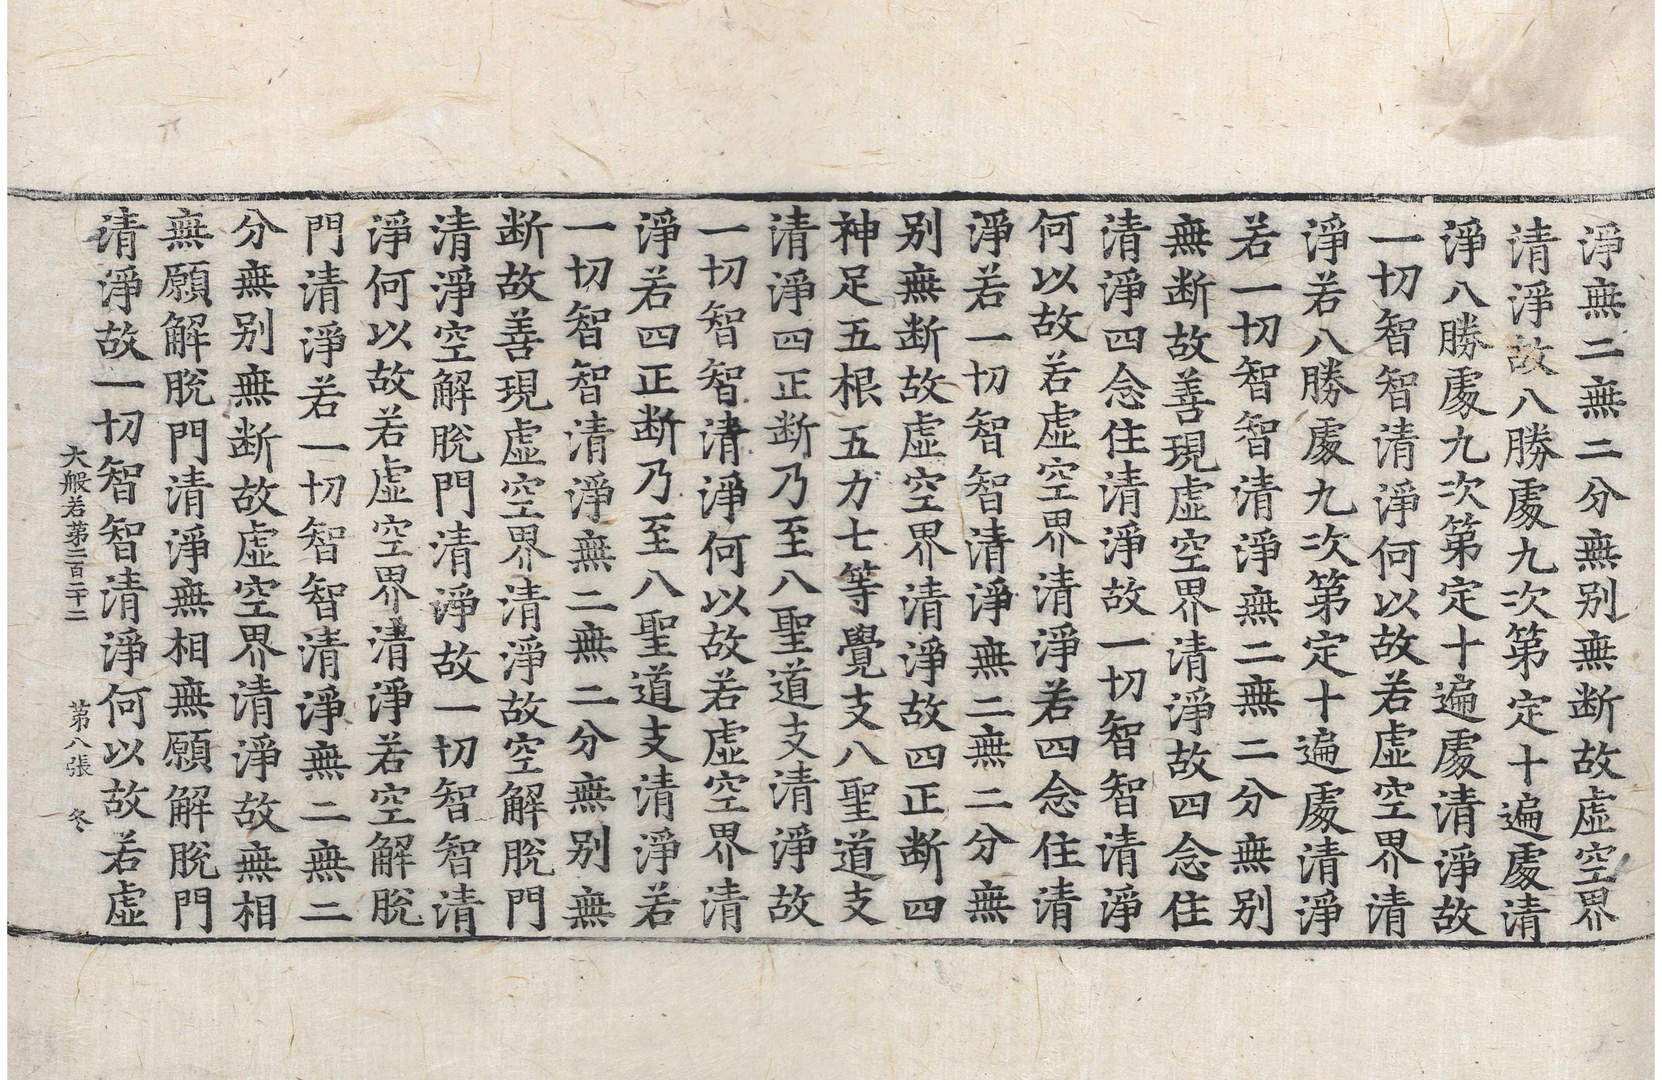 淨無二無二分無别無断故虚空界
清淨故八勝處九次第定十遍處清
淨八勝處九次第定十遍處清淨故
一切智智清淨何以故若虚空界清
淨若八勝處九次第定十遍處清淨
若一切智智清淨無二無二分無别
無断故善現虚空界清淨故四念住
清淨四念住清淨故一切智智清淨
何以故若虚空界清淨若四念住清
淨若一切智智清淨無二無二分無
别無断故虚空界清淨故四正断四
神足五根五力七等覺支八聖道支
清淨四正断乃至八聖道支清淨故
一切智智清淨何以故若虚空界清
淨若四正断乃至八聖道支清淨若
一切智智清淨無二無二分無别無
断故善現虚空界清淨故空解脫門
清淨空解脫門清淨故一切智智清
淨何以故若虚空界清淨若空解脫
門清淨若一切智智清淨無二無二
分無别無断故虚空界清淨故無相
無願解脫門清淨無相無願解脫門
清淨故一切智智清淨何以故若虚
大般若第二百二十二 第八張 冬